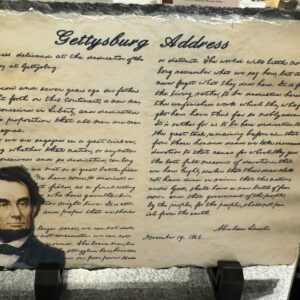 Gettysburg Address
ress delivered at the dedication of the
y at Gettysburg.
score and seven years ago our fathers
forth on this continent, a new
conceived in Liberty, and dedicated
proposition that all men are
equal.
we are engaged in a great civil war,
whether that nation, or any nation
conceived and so dedicated, can long
We are met on a great battle-field
We have come to dedicate a
that field, as a final resting
who here gave their
might live. It is
and proper that we should
larger sense, we can not dedi
not consecrate we can not
ground. The brave men
or detract. The world will little note, nor
long remember what we say here, but it can
never forget what they did here. It is for us
the living, rather, to be dedicated here to
the unfinished work which they who fought
here have thus far so nobly advanced.
It is rather for us to be here dedicated to
the great task remaining before us that
from these honored dead we take increased
devotion to that cause for which they gave
the last full measure of devotion that
we here highly resolve that these dead shall
not have died in vain that this nation,
under God, shall have a new birth of freedom
and that government of the people,
by the people, for the people, shall not perish
from the earth.
Abraham Lincoln
November 19, 1863